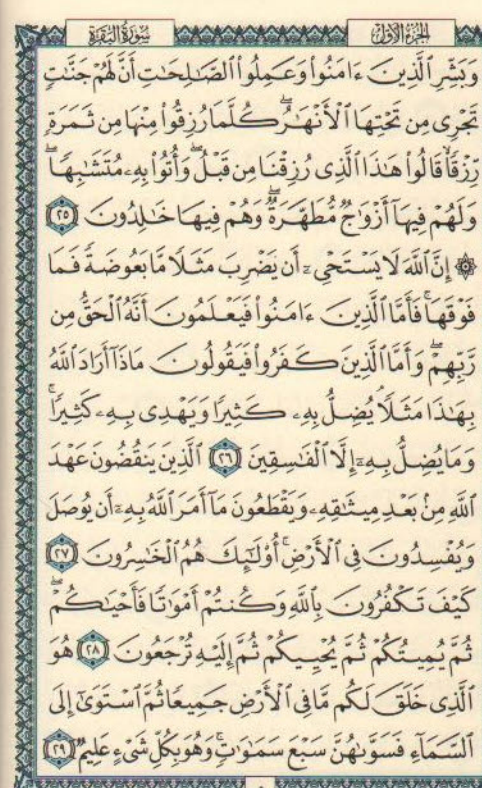 الجزء الأول سورة البقرة
وَبَشِّرِ ٱلَّذِينَ ءَامَنُوا۟ وَعَمِلُوا۟ ٱلصَّـٰلِحَـٰتِ أَنَّ لَهُمْ جَنَّـٰتٍ
تَجْرِى مِن تَحْتِهَا ٱلْأَنْهَـٰرُ ۖ كُلَّمَا رُزِقُوا۟ مِنْهَا مِن ثَمَرَةٍ
رِّزْقًا ۙ قَالُوا۟ هَـٰذَا ٱلَّذِى رُزِقْنَا مِن قَبْلُ ۖ وَأُتُوا۟ بِهِۦ مُتَشَـٰبِهًا ۖ
وَلَهُمْ فِيهَآ أَزْوَٰجٌ مُّطَهَّرَةٌ ۖ وَهُمْ فِيهَا خَـٰلِدُونَ ٢٥
۞ إِنَّ ٱللَّهَ لَا يَسْتَحْىِۦٓ أَن يَضْرِبَ مَثَلًا مَّا بَعُوضَةً فَمَا
فَوْقَهَا ۚ فَأَمَّا ٱلَّذِينَ ءَامَنُوا۟ فَيَعْلَمُونَ أَنَّهُ ٱلْحَقُّ مِن
رَّبِّهِمْ ۖ وَأَمَّا ٱلَّذِينَ كَفَرُوا۟ فَيَقُولُونَ مَاذَآ أَرَادَ ٱللَّهُ
بِهَـٰذَا مَثَلًا ۘ يُضِلُّ بِهِۦ كَثِيرًا وَيَهْدِى بِهِۦ كَثِيرًا ۚ
وَمَا يُضِلُّ بِهِۦٓ إِلَّا ٱلْفَـٰسِقِينَ ٢٦ ٱلَّذِينَ يَنقُضُونَ عَهْدَ
ٱللَّهِ مِنۢ بَعْدِ مِيثَـٰقِهِۦ وَيَقْطَعُونَ مَآ أَمَرَ ٱللَّهُ بِهِۦٓ أَن يُوصَلَ
وَيُفْسِدُونَ فِى ٱلْأَرْضِ ۚ أُو۟لَـٰٓئِكَ هُمُ ٱلْخَـٰسِرُونَ ٢٧
كَيْفَ تَكْفُرُونَ بِٱللَّهِ وَكُنتُمْ أَمْوَٰتًا فَأَحْيَـٰكُمْ ۖ
ثُمَّ يُمِيتُكُمْ ثُمَّ يُحْيِيكُمْ ثُمَّ إِلَيْهِ تُرْجَعُونَ ٢٨ هُوَ
ٱلَّذِى خَلَقَ لَكُم مَّا فِى ٱلْأَرْضِ جَمِيعًا ثُمَّ ٱسْتَوَىٰٓ إِلَى
ٱلسَّمَآءِ فَسَوَّىٰهُنَّ سَبْعَ سَمَـٰوَٰتٍ ۚ وَهُوَ بِكُلِّ شَىْءٍ عَلِيمٌ ٢٩